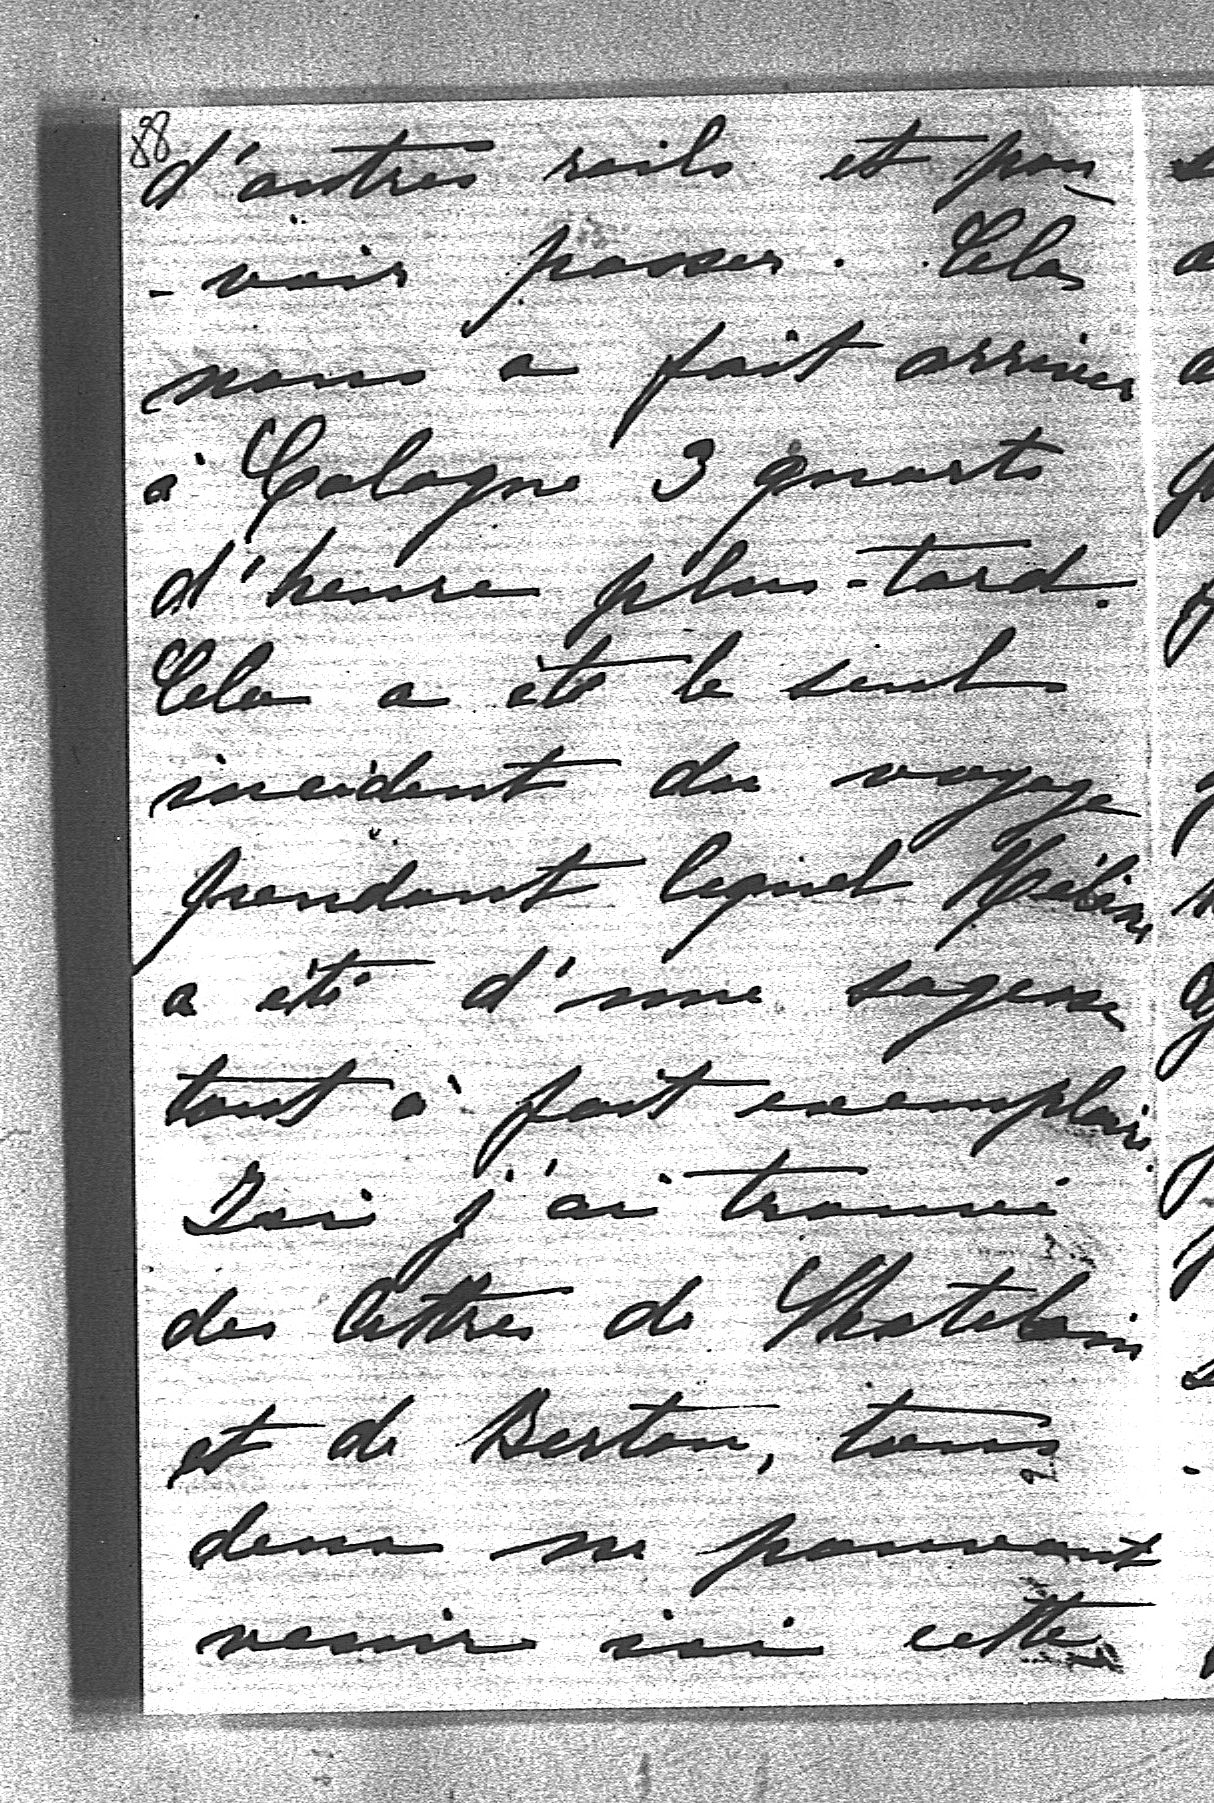 88
d'autres rails et pou
-voir passer. Cela
nous a fait arriver
à Cologne 3 quarts
d'heure plus-tard.
Cela a été le seul
incident du voyage
pendant lequel Hélène
a été d'une sagesse
tout à fait exemplaire.
Ici j'ai trouvé
des lettres de Chatelain
et de Berton, tous
deux ne pouvant
venir ici cette